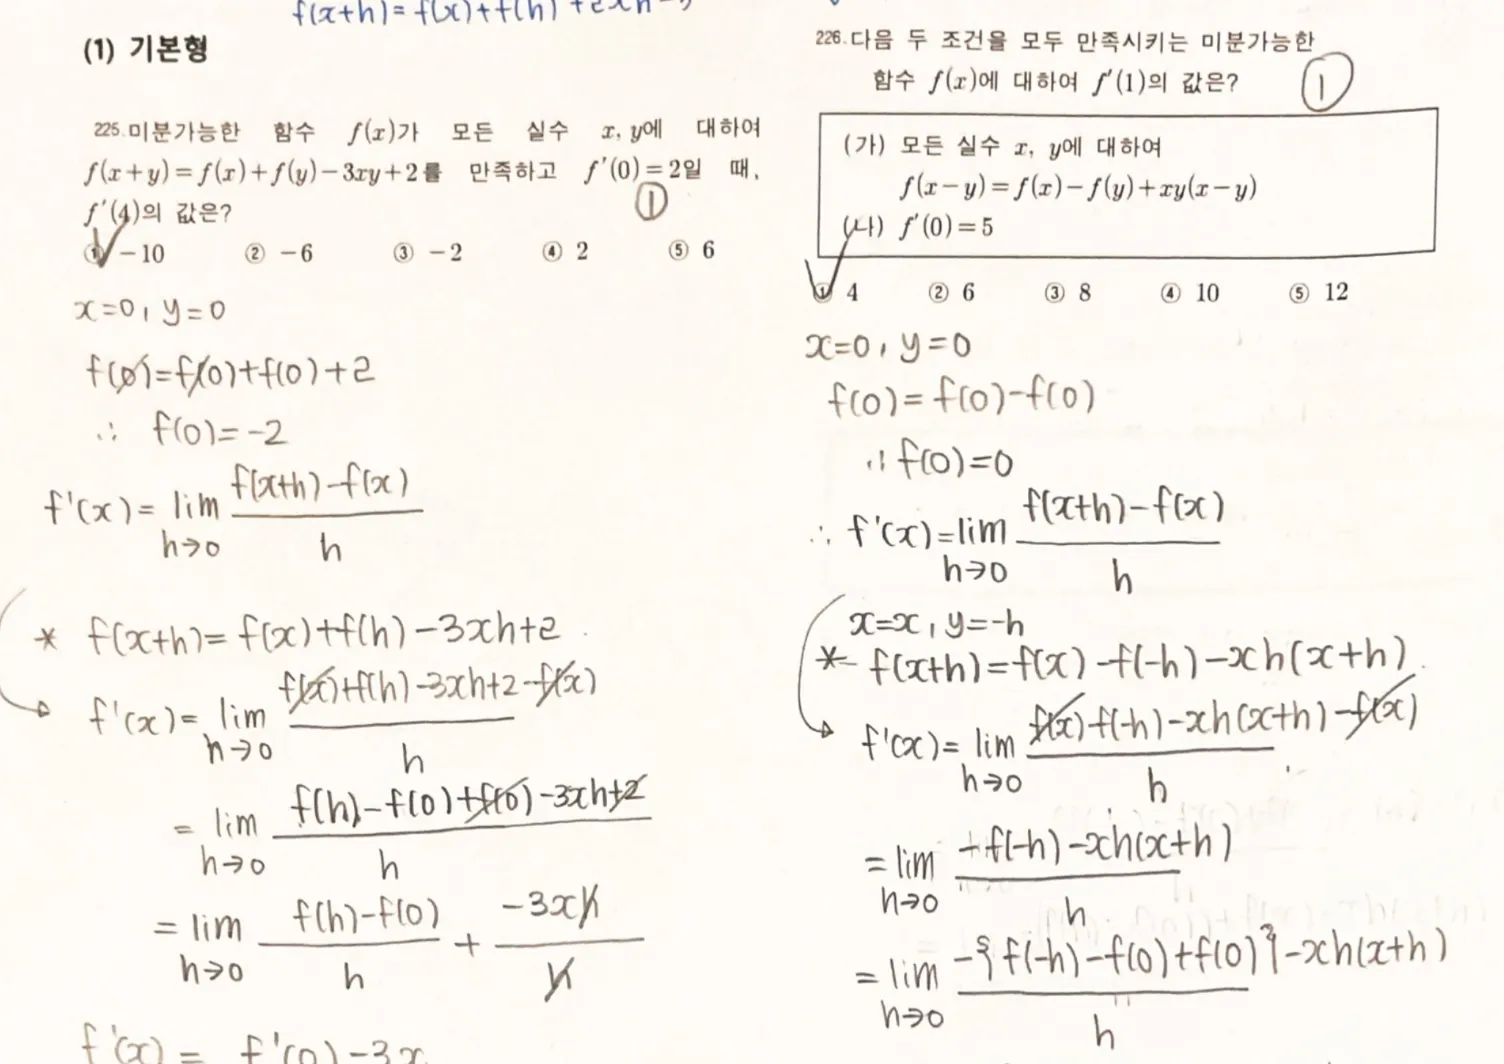 f(x+h)=f(x)+f(h)+2xh-
(1) 기본형
225. 미분가능한 함수 f(x)가 모든 실수 x, y에 대하여
f(x+y)=f(x)+f(y)-3xy+2를 만족하고 f'(0)=2일 때,
f'(4)의 값은?
①
① -10 ② -6 ③ -2 ④ 2 ⑤ 6
x=0, y=0
f(0)=f(0)+f(0)+2
∴ f(0)=-2
f'(x)= lim h→0 f(x+h)-f(x) / h
* f(x+h)= f(x)+f(h)-3xh+2
f'(x)= lim h→0 f(x)+f(h)-3xh+2-f(x) / h
= lim h→0 f(h)-f(0)+f(0)-3xh+2 / h
= lim h→0 f(h)-f(0) / h + -3xh / h
f'(x) = f'(0)-3x
226. 다음 두 조건을 모두 만족시키는 미분가능한
함수 f(x)에 대하여 f'(1)의 값은?
①
(가) 모든 실수 x, y에 대하여
f(x-y)=f(x)-f(y)+xy(x-y)
(나) f'(0)=5
① 4 ② 6 ③ 8 ④ 10 ⑤ 12
x=0, y=0
f(0)= f(0)-f(0)
∴ f(0)=0
∴ f'(x)=lim h→0 f(x+h)-f(x) / h
x=x, y=-h
* f(x+h)=f(x)-f(-h)-xh(x+h)
f'(x)= lim h→0 f(x)-f(-h)-xh(x+h)-f(x) / h
= lim h→0 -f(-h)-xh(x+h) / h
= lim h→0 -{f(-h)-f(0)+f(0)}-xh(x+h) / h